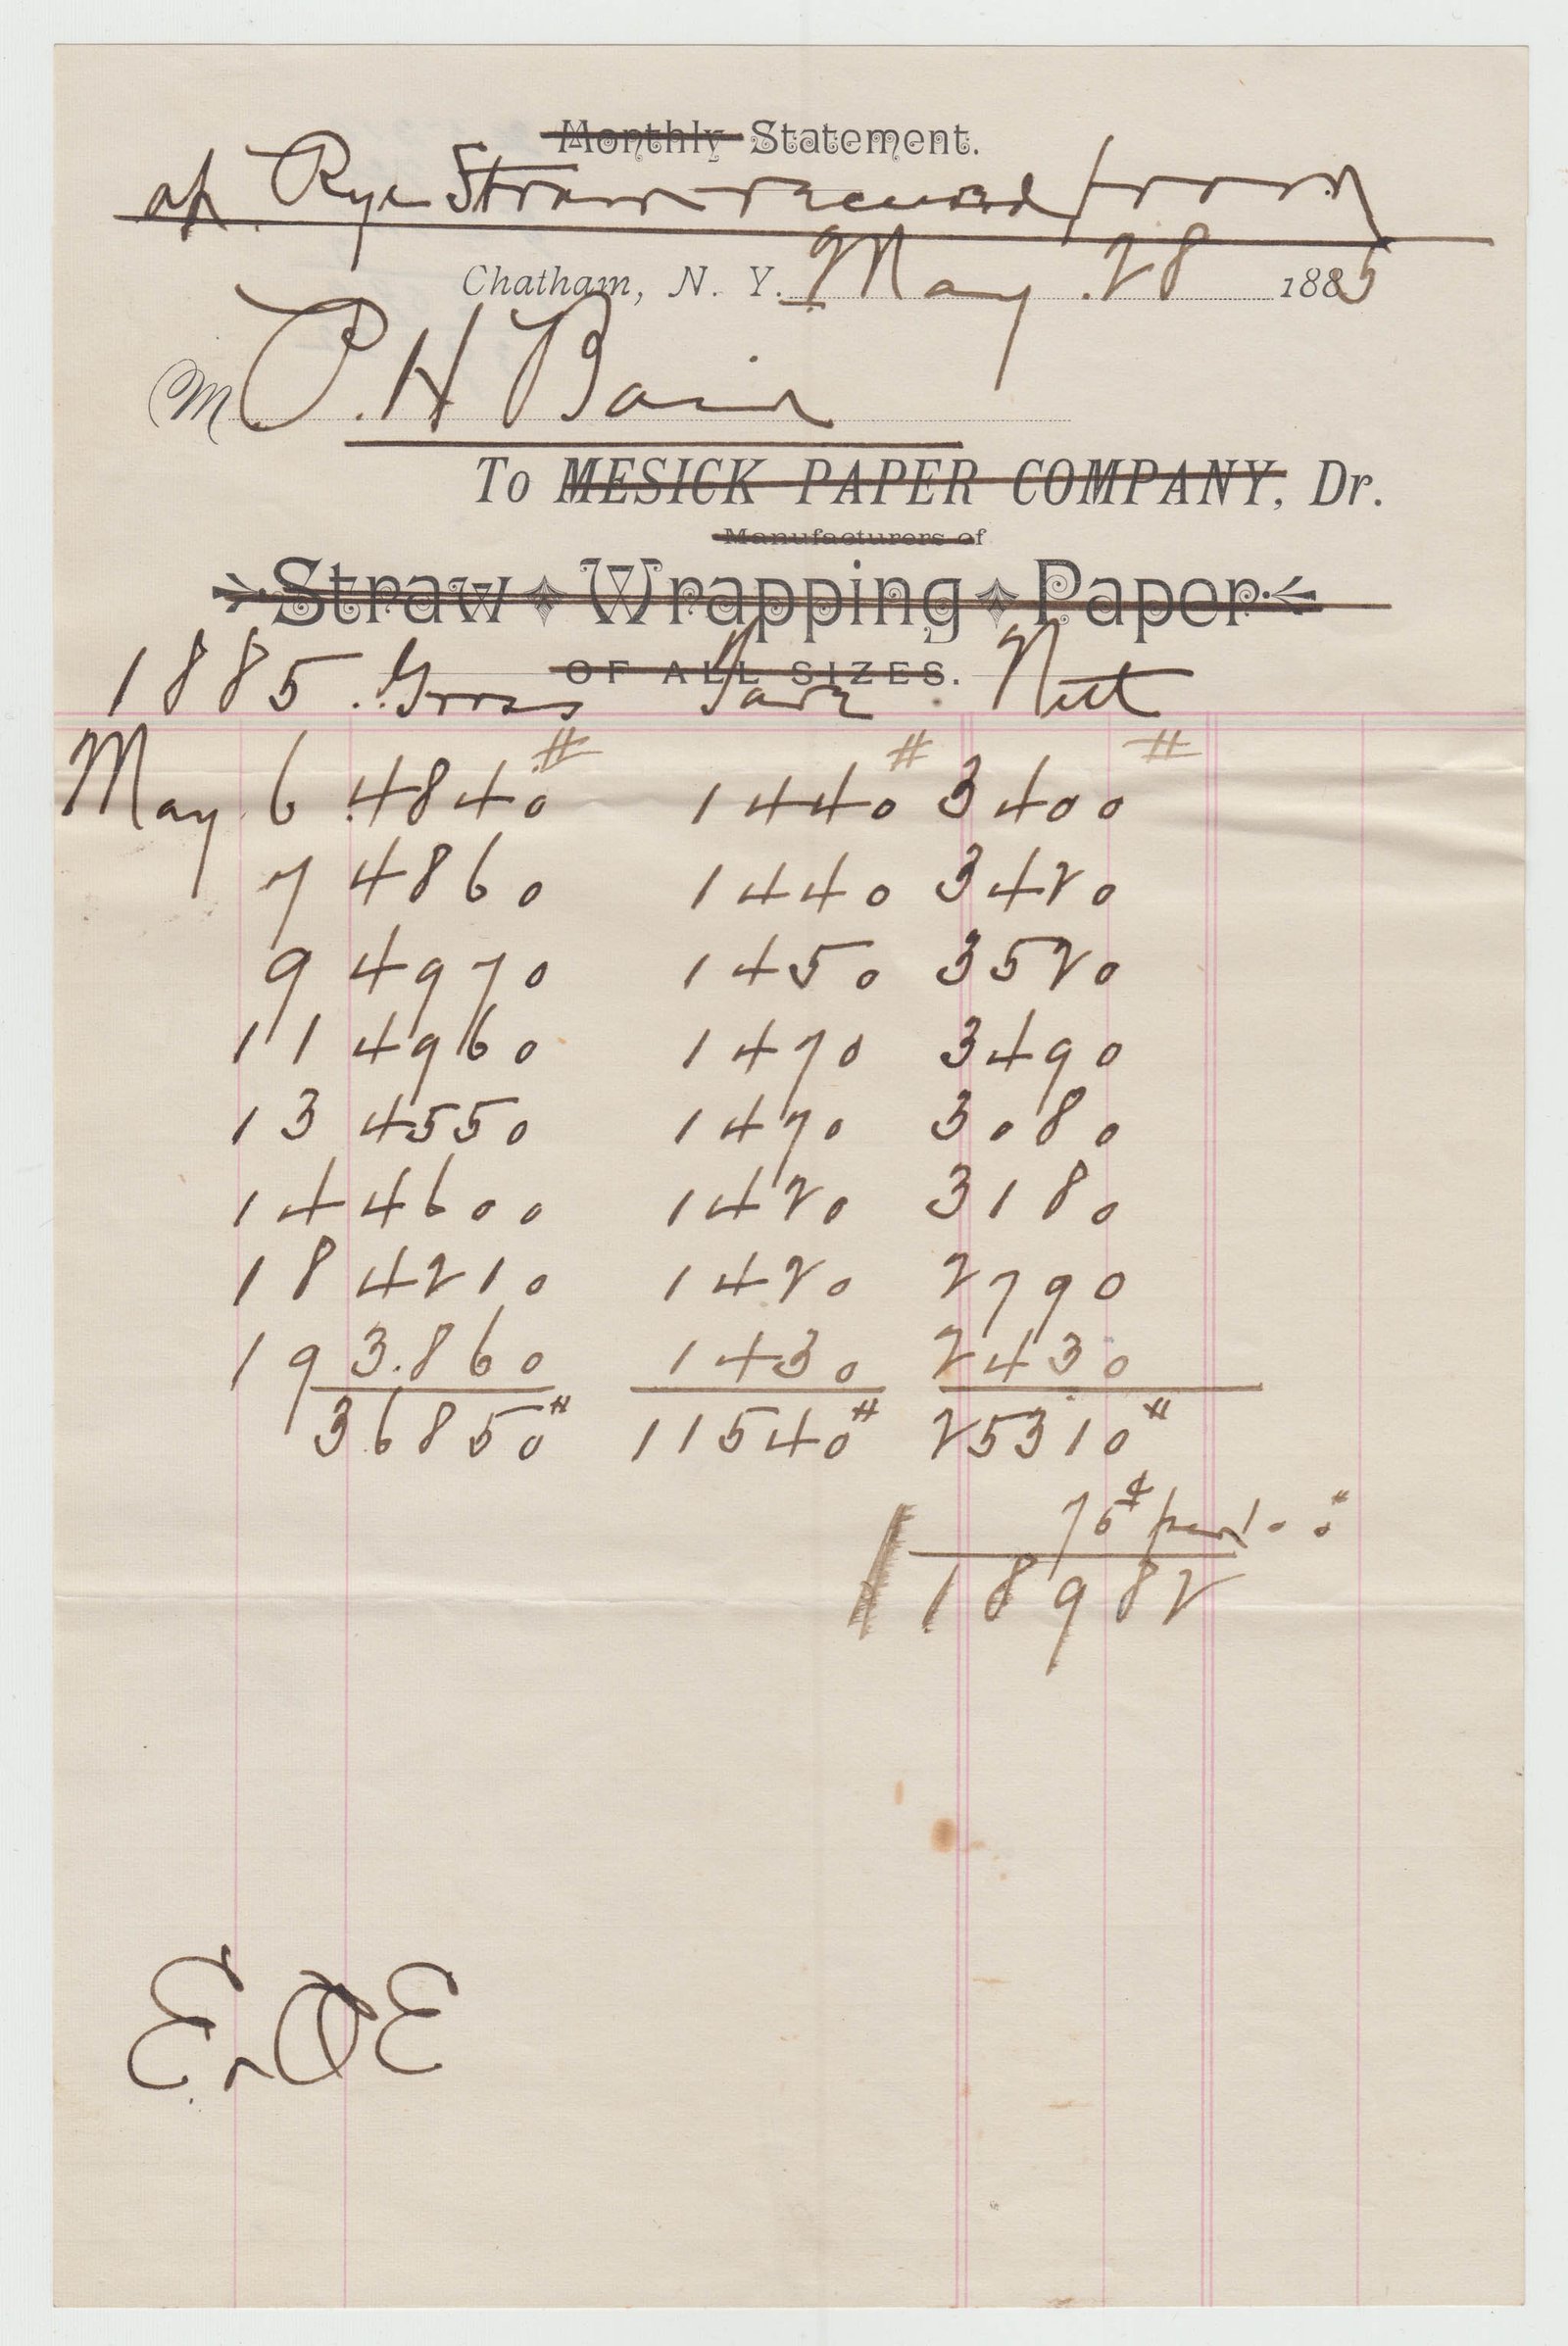 Monthly Statement.
of Rye Straw received from
Chatham, N. Y. May 28 1885
M P. H Bain
To MESICK PAPER COMPANY, Dr.
Manufacturers of
Straw Wrapping Paper
OF ALL SIZES.
1885 Gross Tare Nett
May 6 4840# 1440# 3400#
7 4860 1440 3420
9 4970 1450 3520
11 4960 1470 3490
13 4550 1470 3080
14 4600 1420 3180
18 4210 1420 2790
19 3.860 1430 2430
36850# 11540# 25310#
75¢ per
18982
E. O E